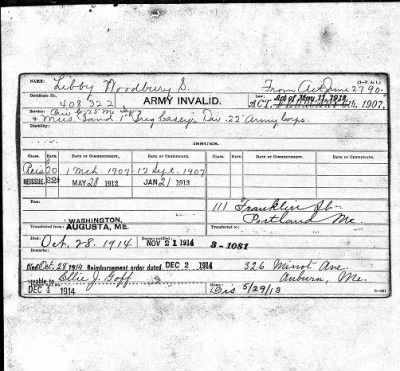 NAME: Libby Woodbury S. From Act June 27 90 (3-P. & I.)
Certificate No. 408 322 ARMY INVALID. Law: Act of May 11, 1912
ACT. FEBRUARY 6th, 1907.
Service: Priv C 25 Me
& Mus. Band 1st Brig Casey's Div. 22" Army Corps.
Disability:
ISSUES.
CLASS. RATE. DATE OF COMMENCEMENT. DATE OF CERTIFICATE. CLASS. RATE. DATE OF COMMENCEMENT. DATE OF CERTIFICATE.
Reis 20 1 Mch 1907 12 Sept. 1907
REISSUE 22 MAY 28 1912 JAN 21 1913
Fees: 111 Franklin St.
WASHINGTON, Portland Me.
Transferred from: AUGUSTA, ME. Transferred to:
Died Oct. 28. 1914 NOV 21 1914 3-1081
Remarks:
Died Oct. 28 1914 Reimbursement order dated DEC 2 1914 326 Minot Ave.
payable to Ellie J. Goff Auburn, Me.
DEC 4 1914 Dis 5/29/13